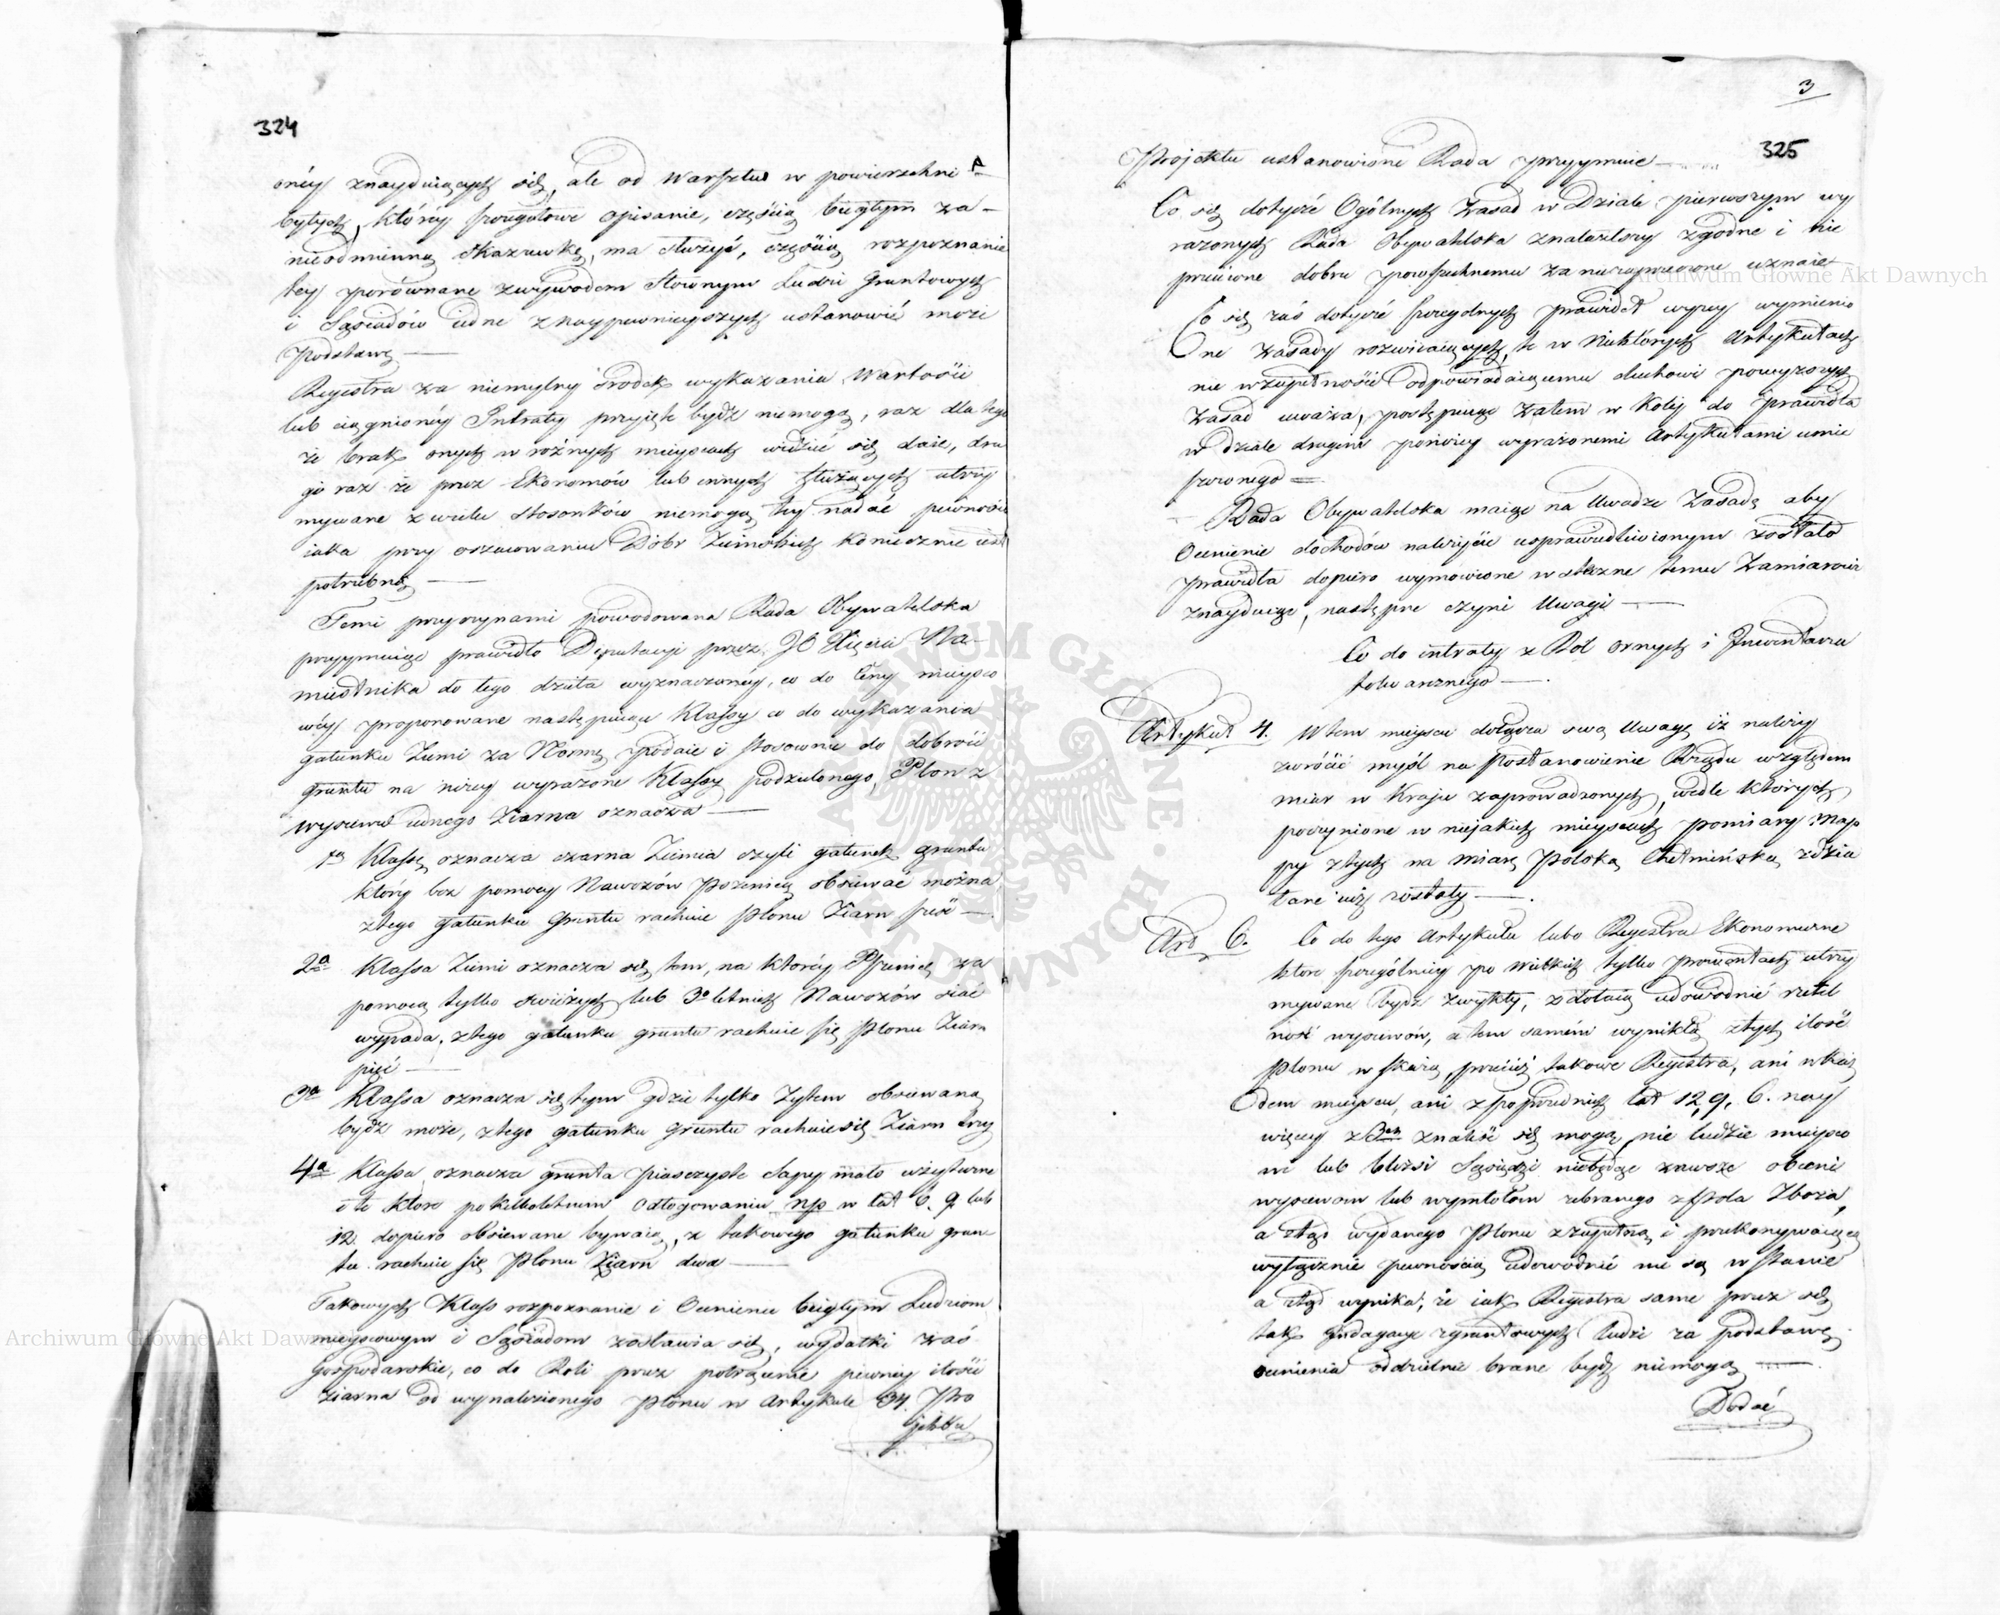 324
onéy znayduiących się, ale od Warsztw w powierzchni A
bytych, którey szczegułowe opisanie, częścią biegłym za-
nieodmienną Skazuwkę, ma służyć, częścią rozpoznanie
tey porównane z wywodem słownym Ludzi Gruntowych
i Sąsiadów iedne z naypewnieyszych ustanowić może
Podstawę —
Reyestra za niemylny środek wykazania Wartości
lub ciągnionéy Intraty przyięte bydź niemogą, raz dla tego
że brak onych w roźnych mieyscach widzieć się daie, dru
gi raz że przez Ekonomów lub innych służących utrzy
mywane z wielu stosunków niemogą tey nadać pewności
iaka przy oszacowaniu Dóbr Ziemskich koniecznie iest
potrzebną —
Temi przyczynami powodowana Rada Obywatelska
przyymuiąc prawidło Deputacyi przez JO Xięcia Na-
miestnika do tego dzieła wyznaczonéy, co do Ceny mieysco
wéy proponowane następuiące Klassy co do wykazania
gatunku Ziemi za Normę podaie i stosownie do dobroci
gruntu na niżey wyrażone Klassy podzielonego, Plon z
wysiewu iednego Ziarna oznacza —
1a Klassę oznacza czarna Ziemia czyli gatunek gruntu
którą bez pomocy Nawozów Pszenicą obsiewać można
z tego gatunku Gruntu rachuie Plonu Ziarn sześć —
2a Klassa Ziemi oznacza się tem, na którey Pszenicę za
pomocą tylko świeżych lub 3o letnich Nawozów siać
wypada, z tego gatunku gruntu rachuie się Plonu Ziarn
pięć —
3a Klassa oznacza się tym gdzie tylko Żytem obsiewaną
bydź może, z tego gatunku Gruntu rachuie się Ziarn trzy
4a Klassa oznacza grunta piaszczyste Sapy mało użyteczne
i te które po kilkoletniem odłogowaniu np w lat 6. 9. lub
12. dopiero obsiewane bywaią, z takowego gatunku grun
tu rachuie się Plonu Ziarn dwa —
Takowych Klass rozpoznanie i Ocenienie biegłym Ludziom
mieyscowym i Sąsiadom zostawia się, wydatki zaś
Gospodarskie, co do Roli przez potrącenie pewney ilości
ziarna od wynalezionego plonu w Artykule 34. Pro
jektu
3
325
Projektu ustanowione Rada przyymuie —
Co się dotycze Ogólnych Zasad w Dziale pierwszym wy
rażonych Rada Obywatelska znalazłszy zgodne i nie
przeciwne dobru powszechnemu za niezaprzeczone uznaie
Co się zaś dotycze szczegulnych prawideł wyżey wymienio
One Zasady rozwiiaiących, te w Niektórych Artykułach
nie w zupełności odpowiadaiącemu duchowi powyższych
Zasad uważa, postępuiąc zatem w Koley do prawidła
w dziale drugim poniżey wyrażonemi Artykułami umie
szczonego =
Rada Obywatelska maiąc na Uwadze Zasadę aby
Ocenienie dochodów należycie usprawiedliwionym zostało
prawidła dopiero wymówione wsteczne temu Zamiarowi
znayduiąc, następne czyni Uwagi —
Co do intraty z Ról ornych i Inwentarza
folwarcznego —
Artykuł 4. W tem mieyscu dołącza swą Uwagę iż należy
zwrócić myśl na Postanowienie Rządu względem
miar w Kraju zaprowadzonych, wedle których
poczynione w niejakich mieyscach pomiary Map
py z tych na miarę Polską Chełmińską zdzia
łane iuż zostały —
Art 6. Co do tego Artykułu lubo Reyestra Ekonomiczne
które szczególniey po Wielkich tylko prowentach utrzy
mywane bydź zwykły, zdołaią udowodnić rzetel
ność wysiewów, a tem samem wynikłą z tych ilość
Plonu wskażą, przecież takowe Reyestra, ani w Każ
Odem mieyscu, ani z poprzednich lat 12, 9, 6. nay
więcey z 3ch znaleść się mogą, nie ludzie mieysco
wi lub bliżsi Sąsiedzi niebędąc zawsze obecni
wysiewom lub wymłotom zebranego z Pola Zboża,
a ztąd wydanego Plonu z zupełną i przekonywaiącą
wyłącznie pewnością udowodnić nie są w stanie
a ztąd wynika, że iak Reyestra same przez się
tak indagacye zgruntowych ludzi za podstawę
ocenienia oddzielnie brane bydź niemogą —
Dodać
Archiwum Główne Akt Dawnych
Archiwum Główne Akt Dawnych
ARCHIWUM GŁÓWNE AKT DAWNYCH